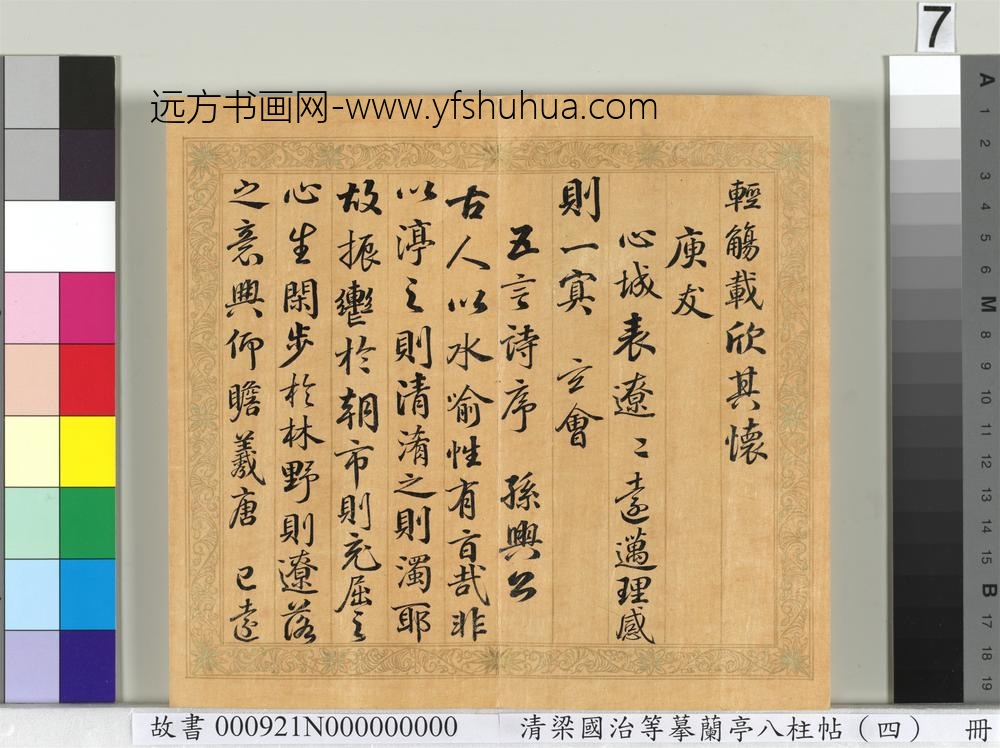 7
远方书画网-www.yfshuhua.com
輕觴載欣其懷
庾友
心城表遼〻遠邁理感
則一㝠 玄會
五言詩序 孫興公
古人以水喻性有旨哉非
以渟之則清淆之則濁耶
故振轡於朝市則充屈之
心生閑步於林野則遼落
之意興仰瞻羲唐 已遠
A 1 2 3 4 5 6 M 8 9 10 11 12 13 14 15 B 17 18 19
故書 000921N000000000 清梁國治等摹蘭亭八柱帖(四) 冊